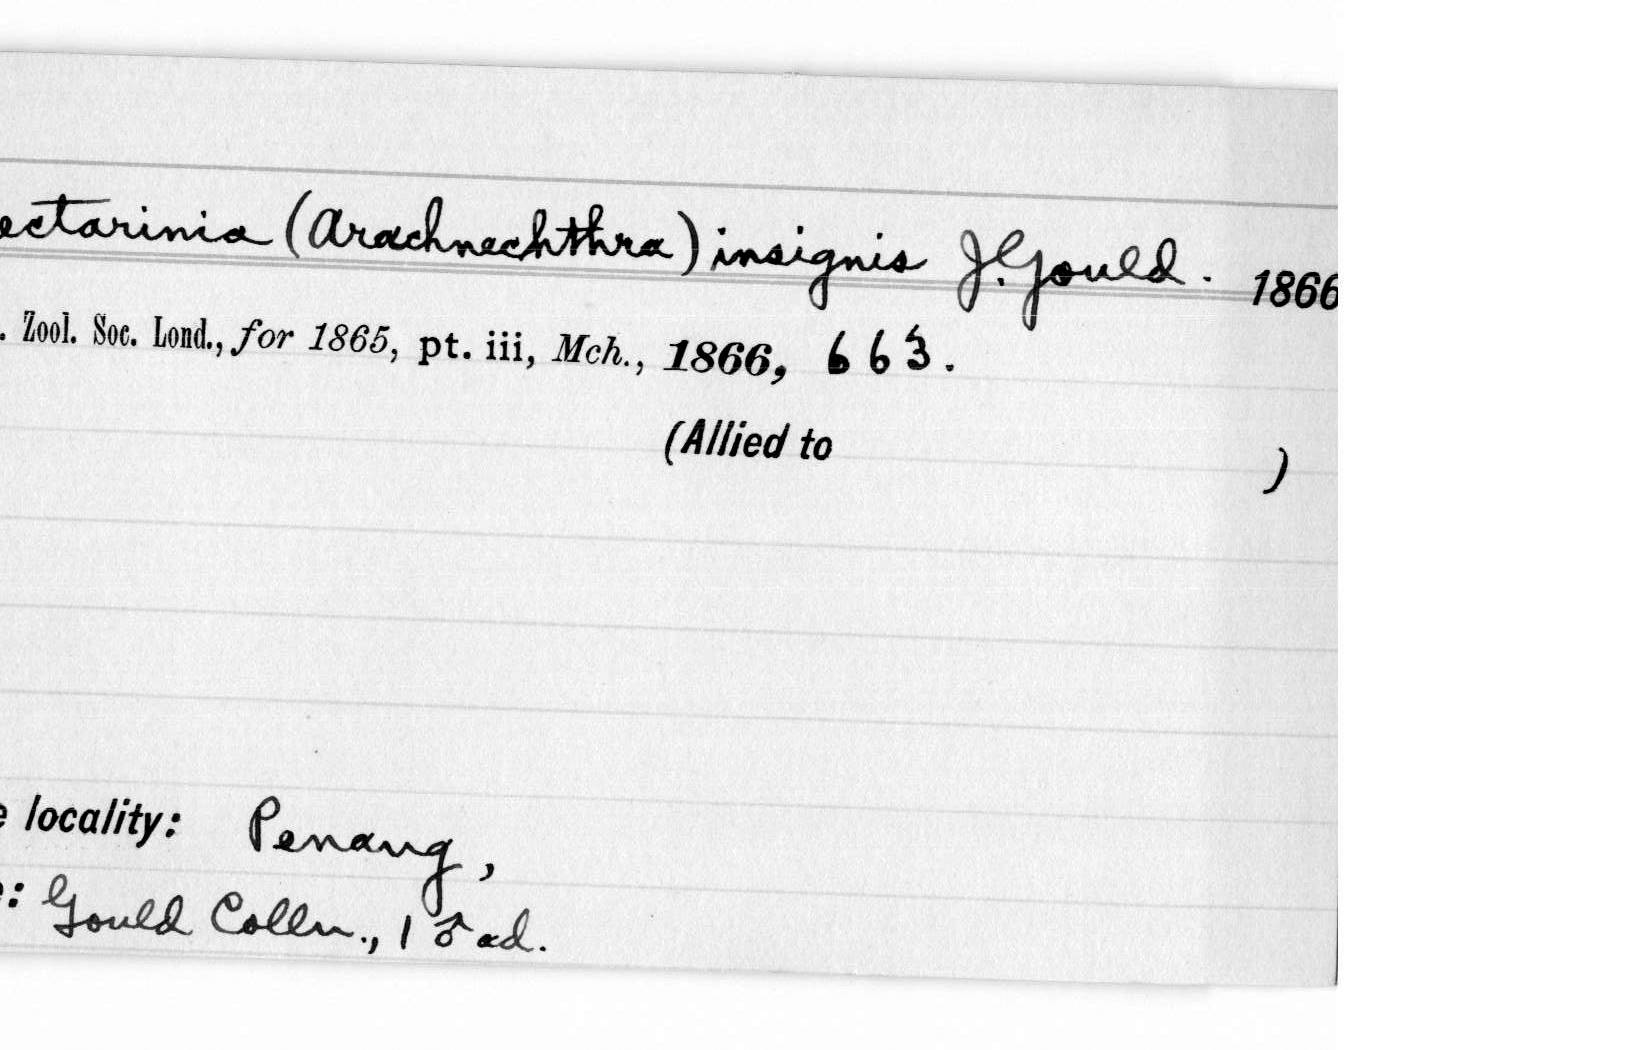 ectarinia (Arachnechthra) insignis J. Gould. 1866
. Zool. Soc. Lond., for 1865, pt. iii, Mch., 1866, 663.
(Allied to )
e locality: Penang,
e: Gould Colln., 1 ♂ ad.